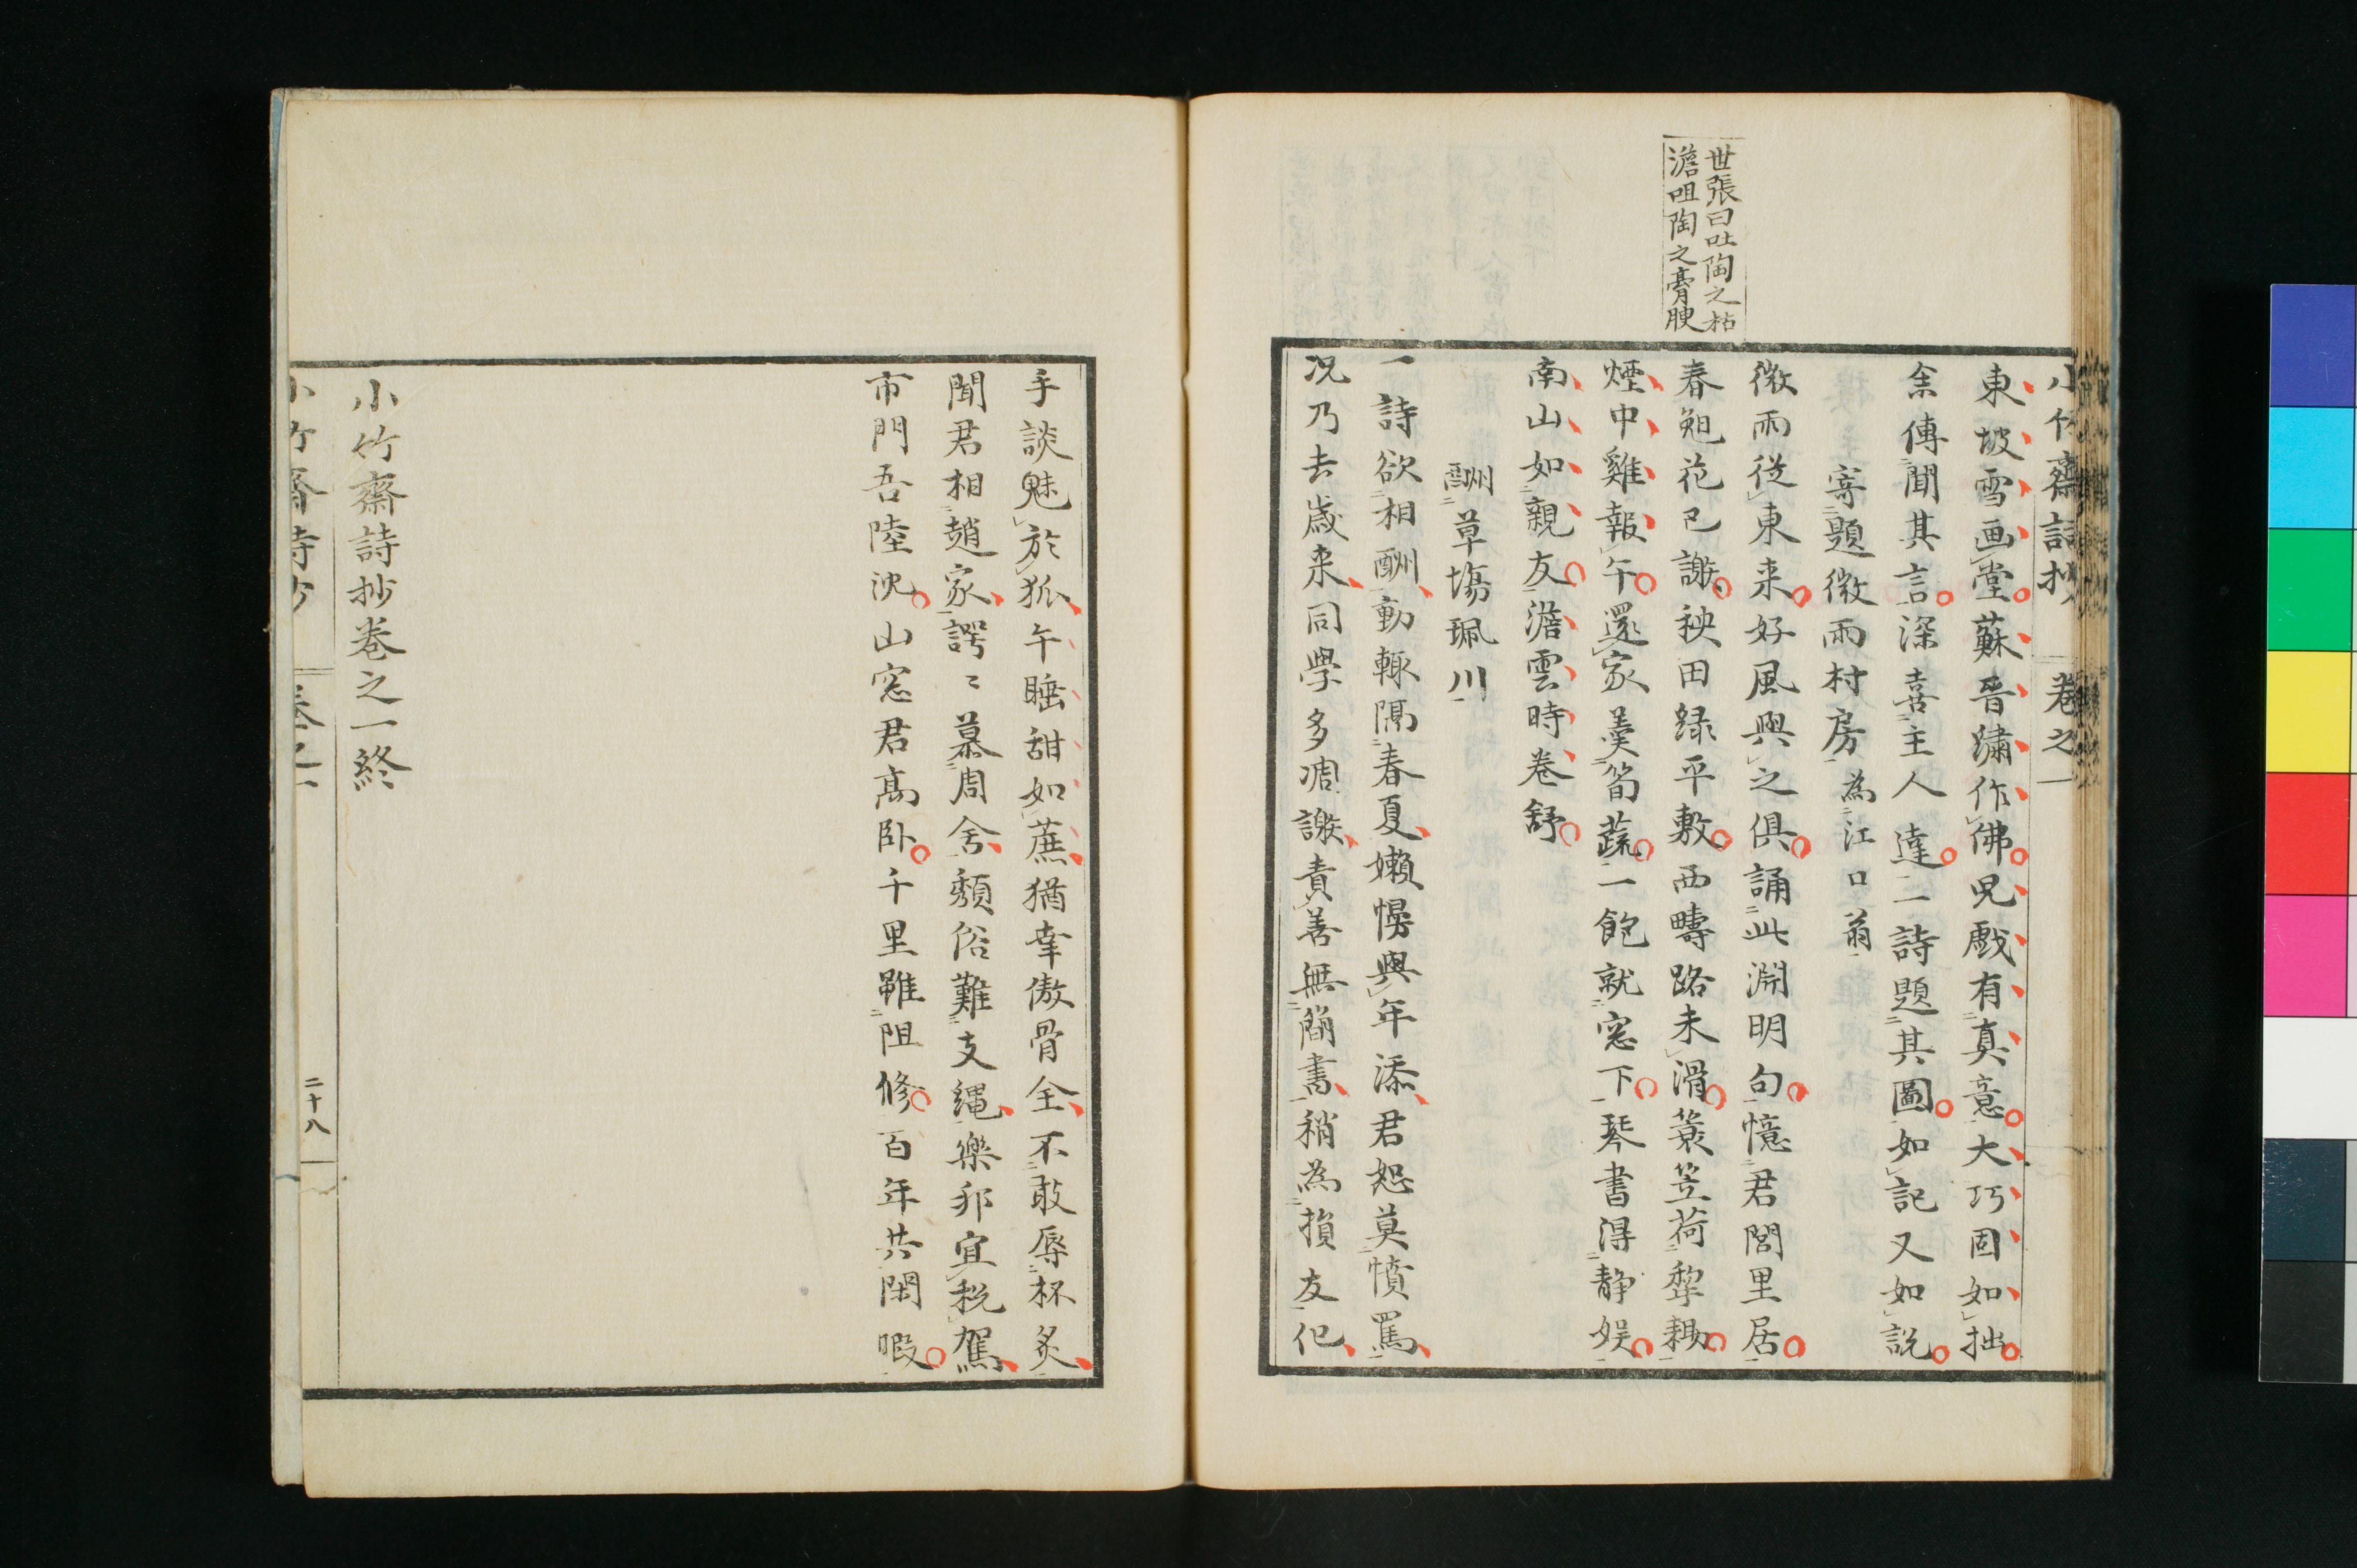 世張曰吐陶之枯
澹咀陶之膏腴
小竹齋詩抄 卷之一
東坡雪画堂蘇晋繡作佛児戲有真意大巧固如拙
余傳聞其言深喜主人達二詩題其圖如記又如説
寄題微雨村房為江口翁
微雨従東来好風與之俱誦此淵明句憶君閭里居
春翅花已謝秧田緑平敷西疇路未滑蓑笠荷犂耡
煙中雞報午還家羹筍蔬一飽就窓下琴書得静娯
南山如親友澹雲時卷舒
酬草塲珮川
一詩欲相酬動輒隔春夏嬾慢與年添君恕莫憤罵
况乃去歳来同學多凋謝責善無簡書稍為損友化
手談魅於狐午睡甜如蔗猶幸傲骨全不敢辱杯炙
聞君相趙家諤〻慕周舎頽俗難支繩樂邪宜税駕
市門吾陸沈山窓君高卧千里雖阻修百年共閑暇
小竹齋詩抄卷之一終
小竹齋詩抄 卷之一 二十八